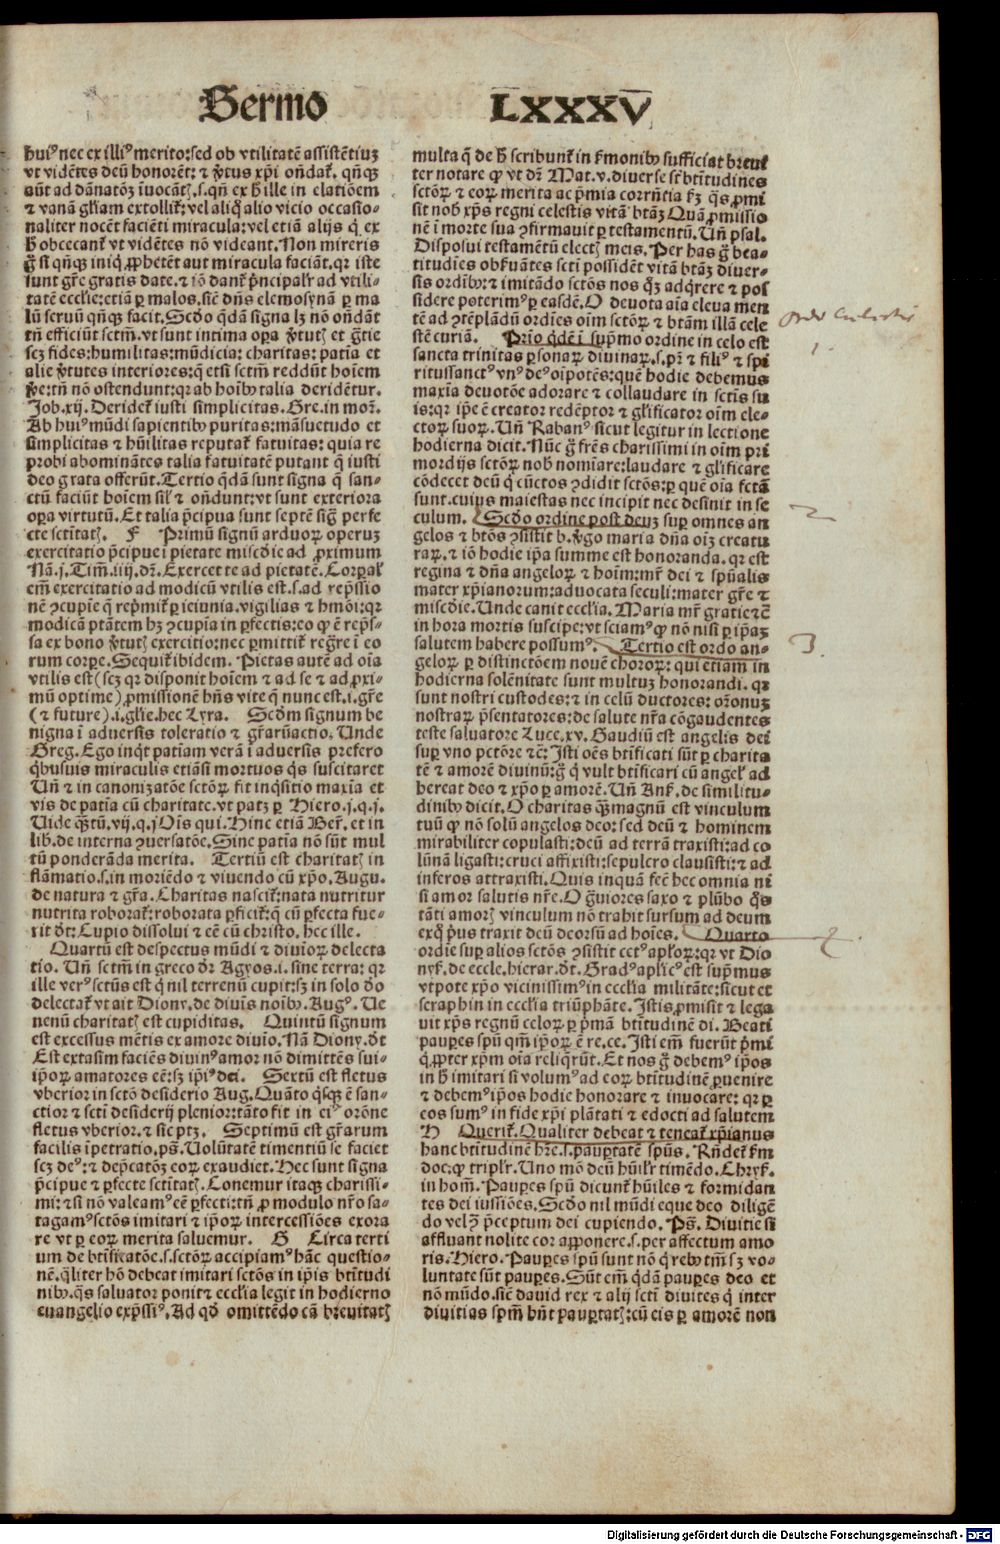 Sermo LXXXV
huiꝰ nec ex illiꝰ merito: sed ob vtilitatē assistētiuꝫ
vt vidētes deū honorēt: ⁊ v̓tus xp̄i oñdat᷑. qn̄qꝫ
aūt ad dānatōꝫ īuocātꝭ. s. qn̄ ex h̄ ille in elatiōem
⁊ vanā gl̄iam extollit᷑: vel aliq̄ alio vicio occasio⸗
naliter nocēt faciēti miracula: vel etiā alijs q̄ ex
h̄ obcecant᷑ vt vidētes nō videant. Non mireris
g̊ si qn̄qꝫ iniq̄ ꝓphetēt aut miracula faciāt. qꝛ iste
sunt gr̄e gratis date. ⁊ iō dant᷑ p̄ncipalꝛ ad vtili⸗
tatē ecclie: etiā ꝑ malos. sic̄ dn̄s elemosynā ꝑ ma
lū seruū qn̄qꝫ facit. Scd̓o q̄dā signa lꝫ nō on̄dāt
tn̄ efficiūt sctm̄. vt sunt intima oꝑa v̓tutꝭ et gr̄tie
scꝫ fides: humilitas: mūdicia: charitas: patīa et
alie v̓tutes interiores: q̄ etsi sctm̄ reddūt hoīem
v̓e: tn̄ nō ostendunt: qꝛ ab hoībꝰ talia deridētur.
Job. xij. Deridet᷑ iusti simplicitas. Gre. in moꝛ.
Ab huiꝰ mūdi sapientibꝰ puritas: māsuetudo et
simplicitas ⁊ hūilitas reputat᷑ fatuitas: quia re
probi abominātes talia fatuitatē putant q̄ iusti
deo grata offerūt. Tertio q̄dā sunt signa q̄ san⸗
ctū faciūt hoīem sil̄ ⁊ on̄dunt: vt sunt exteriora
oꝑa virtutū. Et talia p̄cipua sunt septē siḡ perfe
cte sc̄titatꝭ. F Primū signū arduoꝝ operuꝫ
exercitatio p̄cipue ī pietate misc̄die ad ꝓximum
Nā. j. Tim̄. iiij. dꝛ. Exerce te ad pietatē. Corꝑal̓
em̄ exercitatio ad modicū vtilis est. s. ad rep̄ssio
nē ꝯcupīe q̄ rep̄mit᷑ ꝑ ieiunia. vigilias ⁊ hmōi: qꝛ
modicā ptātem hꝫ ꝯcupīa in ꝑfectis: eo ꝙ ē rep̄s⸗
sa ex bono v̓tutꝭ exercitio: nec ꝑmittit᷑ regr̄e ī eo
rum corꝑe. Sequit᷑ ibidem. Pietas autē ad oīa
vtilis est (scꝫ qꝛ disponit hoīem ⁊ ad se ⁊ ad ꝓxi⸗
mū optime) ꝓmissionē hn̄s vite q̄ nunc est. i. gr̄e
(⁊ future). i. gl̄ie. hec Lyra. Scd̓m signum be
nigna ī aduersis toleratio ⁊ gr̄aꝛūactio. Unde
Greg. Ego inqt̓ patīam verā ī aduersis prefero
q̄busuis miraculis etiāsi mortuos q̄s suscitaret
Uñ ⁊ in canonizatōe sctōꝝ fit inq̄sitio maxīa et
vis de patīa cū charitate. vt patꝫ ꝑ Hiero. j. q. j.
Uide q̄stū. vij. q. j Oīs qui. Hinc etiā Ber̄. et in
lib. de interna ꝯuersatōe. Sine patīa nō sūt mul
tū ponderāda merita. Tertiū est charitatꝭ in
flāmatio. s. in moriēdo ⁊ viuendo cū xp̄o. Augu.
de natura ⁊ gr̄a. Charitas nascit᷑: nata nutritur
nutrita roborat᷑: roborata ꝑficit᷑: q̄ cū ꝑfecta fue⸗
rit dt̄: Cupio dissolui ⁊ eē cū christo. hec ille.
Quartū est despectus mūdi ⁊ diuīoꝝ delecta
tio. Uñ sctm̄ in greco dꝛ Agyos. i. sine terra: qꝛ
ille verꝰ sctūs est q̄ nil terrenū cupit: sꝫ in solo do
delectat᷑ vt ait Diony. de diuīs noībꝰ. Augꝰ. Ue
nenū charitatꝭ est cupiditas. Quintū signum
est excessus mētis ex amore diuīo. Nā Diony. dt̄
Est extasim faciēs diuinꝰ amor nō dimittēs sui⸗
ip̄oꝝ amatores eē: sꝫ ip̄iꝰ dei. Sextū est fletus
vberior in sctō desiderio Aug. Quāto q̄sqꝫ ē san⸗
ctior ⁊ scti desiderij plenior: tāto fit in eiꝰ orōne
fletus vberior. ⁊ sic ptꝫ. Septimū est gr̄arum
facilis īpetratio. pꝰ. Uolūtatē timentiū se faciet
scꝫ deꝰ: ⁊ dep̄catōꝫ eoꝝ exaudiet. Hec sunt signa
p̄cipue ⁊ ꝑfecte sc̄titatꝭ. Conemur itaqꝫ charissi⸗
mi: ⁊ si nō valeamꝰ eē ꝑfecti: tn̄ ꝓ modulo nr̄o sa⸗
tagamꝰ sctōs imitari ⁊ ip̄oꝝ intercessiōes exora
re vt ꝑ eoꝝ merita saluemur. G Circa terti
um de btīficatōe. s. sctōꝝ accipiamꝰ hāc questio⸗
nē. q̄liter hō debeat imitari sctōs in ip̄is btītudi
nibꝰ. q̄s saluator ponit ⁊ ecclīa legit in hodierno
euangelio exp̄ssiꝰ. Ad qd̓ omittēdo cā breuitatꝭ
multa q̄ de h̄ scribunt᷑ in s̓monibꝰ sufficiat breuit᷑
ter notare ꝙ vt dꝛ Mat. v. diuerse sr̄ btītudines
sctōꝝ ⁊ eoꝝ merita ac p̄mia corrn̄tia s̓ꝫ q̄s ꝓmi
sit nob̓ xp̄s regni celestis vitā btāꝫ Quā ꝓmissio
nē ī morte sua ꝯfirmauit ꝑ testamentū. Uñ psal.
Disposui testamētū electꝭ meis. Per has g̊ bea⸗
titudīes obs̓uātes scti possidēt vitā btāꝫ diuer⸗
sis ordībꝰ: ⁊ imitādo sctōs nos q̄ꝫ adq̄rere ⁊ pos
sidere poterimꝰ ꝑ easdē. O deuota aīa eleua men
tē ad ꝯtēplādū ordīes oīm sctōꝝ ⁊ btām illā cele
stē curiā. Prīo q̄dē ī sup̄mo ordine in celo est
sancta trinitas ꝑsonaꝝ diuinaꝝ. s. pꝛ ⁊ filiꝰ ⁊ spi
ritussanctꝰ vnꝰ deꝰ oīpotēs: quē hodie debemus
maxīa deuotōe adorare ⁊ collaudare in sctis su
is: qꝛ ip̄e ē creator redēptor ⁊ gl̓ificator oīm ele⸗
ctoꝝ suoꝝ. Uñ Rabanꝰ sicut legitur in lectione
hodierna dicit. Nūc g̊ fr̄es charissimi in oīm pri
mordijs sctōꝝ nob̓ nomīare: laudare ⁊ gl̓ificare
cōdecet deū q̄ cūctos ꝯdidit sctōs: ꝑ quē oīa fctā
sunt. cuius maiestas nec incipit nec desinit in se
culum. Scd̓o ordine post deuꝫ suꝑ omnes an
gelos ⁊ btōs ꝯsistit b. v̓go maria dn̄a oīꝫ creatu
raꝝ. ⁊ iō hodie ip̄a summe est honoranda. qꝛ est
regina ⁊ dn̄a angeloꝝ ⁊ hoīm: mr̄ dei ⁊ sp̄ualis
mater xp̄ianorum: aduocata seculi: mater gr̄e ⁊
misc̄die. Unde canit ecclīa. Maria mr̄ gratie ⁊c̄
in hora mortis suscipe: vt sciamꝰ ꝙ nō nisi ꝑ ip̄aꝫ
salutem habere possumꝰ. Tertio est ordo an⸗
geloꝝ ꝑ distinctōem nouē choroꝝ: qui etiam in
hodierna solēnitate sunt multuꝫ honorandi. qꝛ
sunt nostri custodes: ⁊ in celū ductores: orōnuꝫ
nostraꝝ p̄sentatores: de salute nr̄a cōgaudentes
teste saluatore Luce. xv. Gaudiū est angelis dei
suꝑ vno pctōre ⁊c̄: Isti oēs btīficati sūt ꝑ charita
tē ⁊ amorē diuinū: g̊ q̄ vult btīficari cū angel̓ ad
hereat deo ⁊ xp̄o ꝑ amorē. Uñ Ans̓. de similitu⸗
dinibꝰ dicit. O charitas q̄ꝫ magnū est vinculum
tuū ꝙ nō solū angelos deo: sed deū ⁊ hominem
mirabiliter copulasti: deū ad terrā traxisti: ad co
lūnā ligasti: cruci affixisti: sepulcro clausisti: ⁊ ad
inferos attraxisti. Quis inquā fec̄ hec omnia ni
si amor salutis nr̄e. O g̓uiores saxo ⁊ plūbo q̄s
tāti amorꝭ vinculum nō trahit sursum ad deum
exq̄ p̓us traxit deū deorsū ad hoīes. Quarto
ordīe suꝑ alios sctōs ꝯsistit cetꝰ apl̓oꝝ: qꝛ vt Dio
nys̓. de eccle. hierar. dt̄. Gradꝰ apl̓icꝰ est sup̄mus
vtpote xp̄o vicinissimꝰ in ecclīa militāte: sicut et
seraphin in ecclīa triūphāte. Istis ꝓmisit ⁊ lega
uit xp̄s regnū celoꝝ ꝑ p̄mā btītudinē di. Beati
pauꝑes spū qm̄ ip̄oꝝ ē re. ce. Isti em̄ fuerūt p̓mi
q̄ ꝓpter xp̄m oīa reliq̄rūt. Et nos g̊ debemꝰ ip̄os
in h̄ imitari si volumꝰ ad eoꝝ btītudinē ꝑuenire
⁊ debemꝰ ip̄os hodie honorare ⁊ inuocare: qꝛ ꝑ
eos sumꝰ in fide xp̄i plātati ⁊ edocti ad salutem
H Querit᷑. Qualiter debeat ⁊ teneat᷑ xp̄ianus
hanc btītudinē hr̄e. s. pauꝑtatē spūs. Rn̄det᷑ s̓m
doc. ꝙ triplꝛ. Uno mō deū hūil̓r timēdo. Chrys̓.
in hom̄. Pauꝑes spū dicunt᷑ hūiles ⁊ formidan
tes dei iussiōes. Scd̓o nil mūdi eque deo diligē
do vel ꝯ p̄ceptum dei cupiendo. Pꝰ. Diuitie si
affluant nolite cor apponere. s. per affectum amo
ris. Hiero. Pauꝑes spū sunt nō q̄ rebꝰ tm̄ sꝫ vo⸗
luntate sūt pauꝑes. Sūt em̄ q̄dā pauꝑes deo et
nō mūdo. sic̄ dauid rex ⁊ alij scti diuites q̄ inter
diuitias spm̄ hn̄t pauꝑtatꝭ: cū eis ꝑ amorē non
1.
2
3.
Digitalisierung gefördert durch die Deutsche Forschungsgemeinschaft - DFG